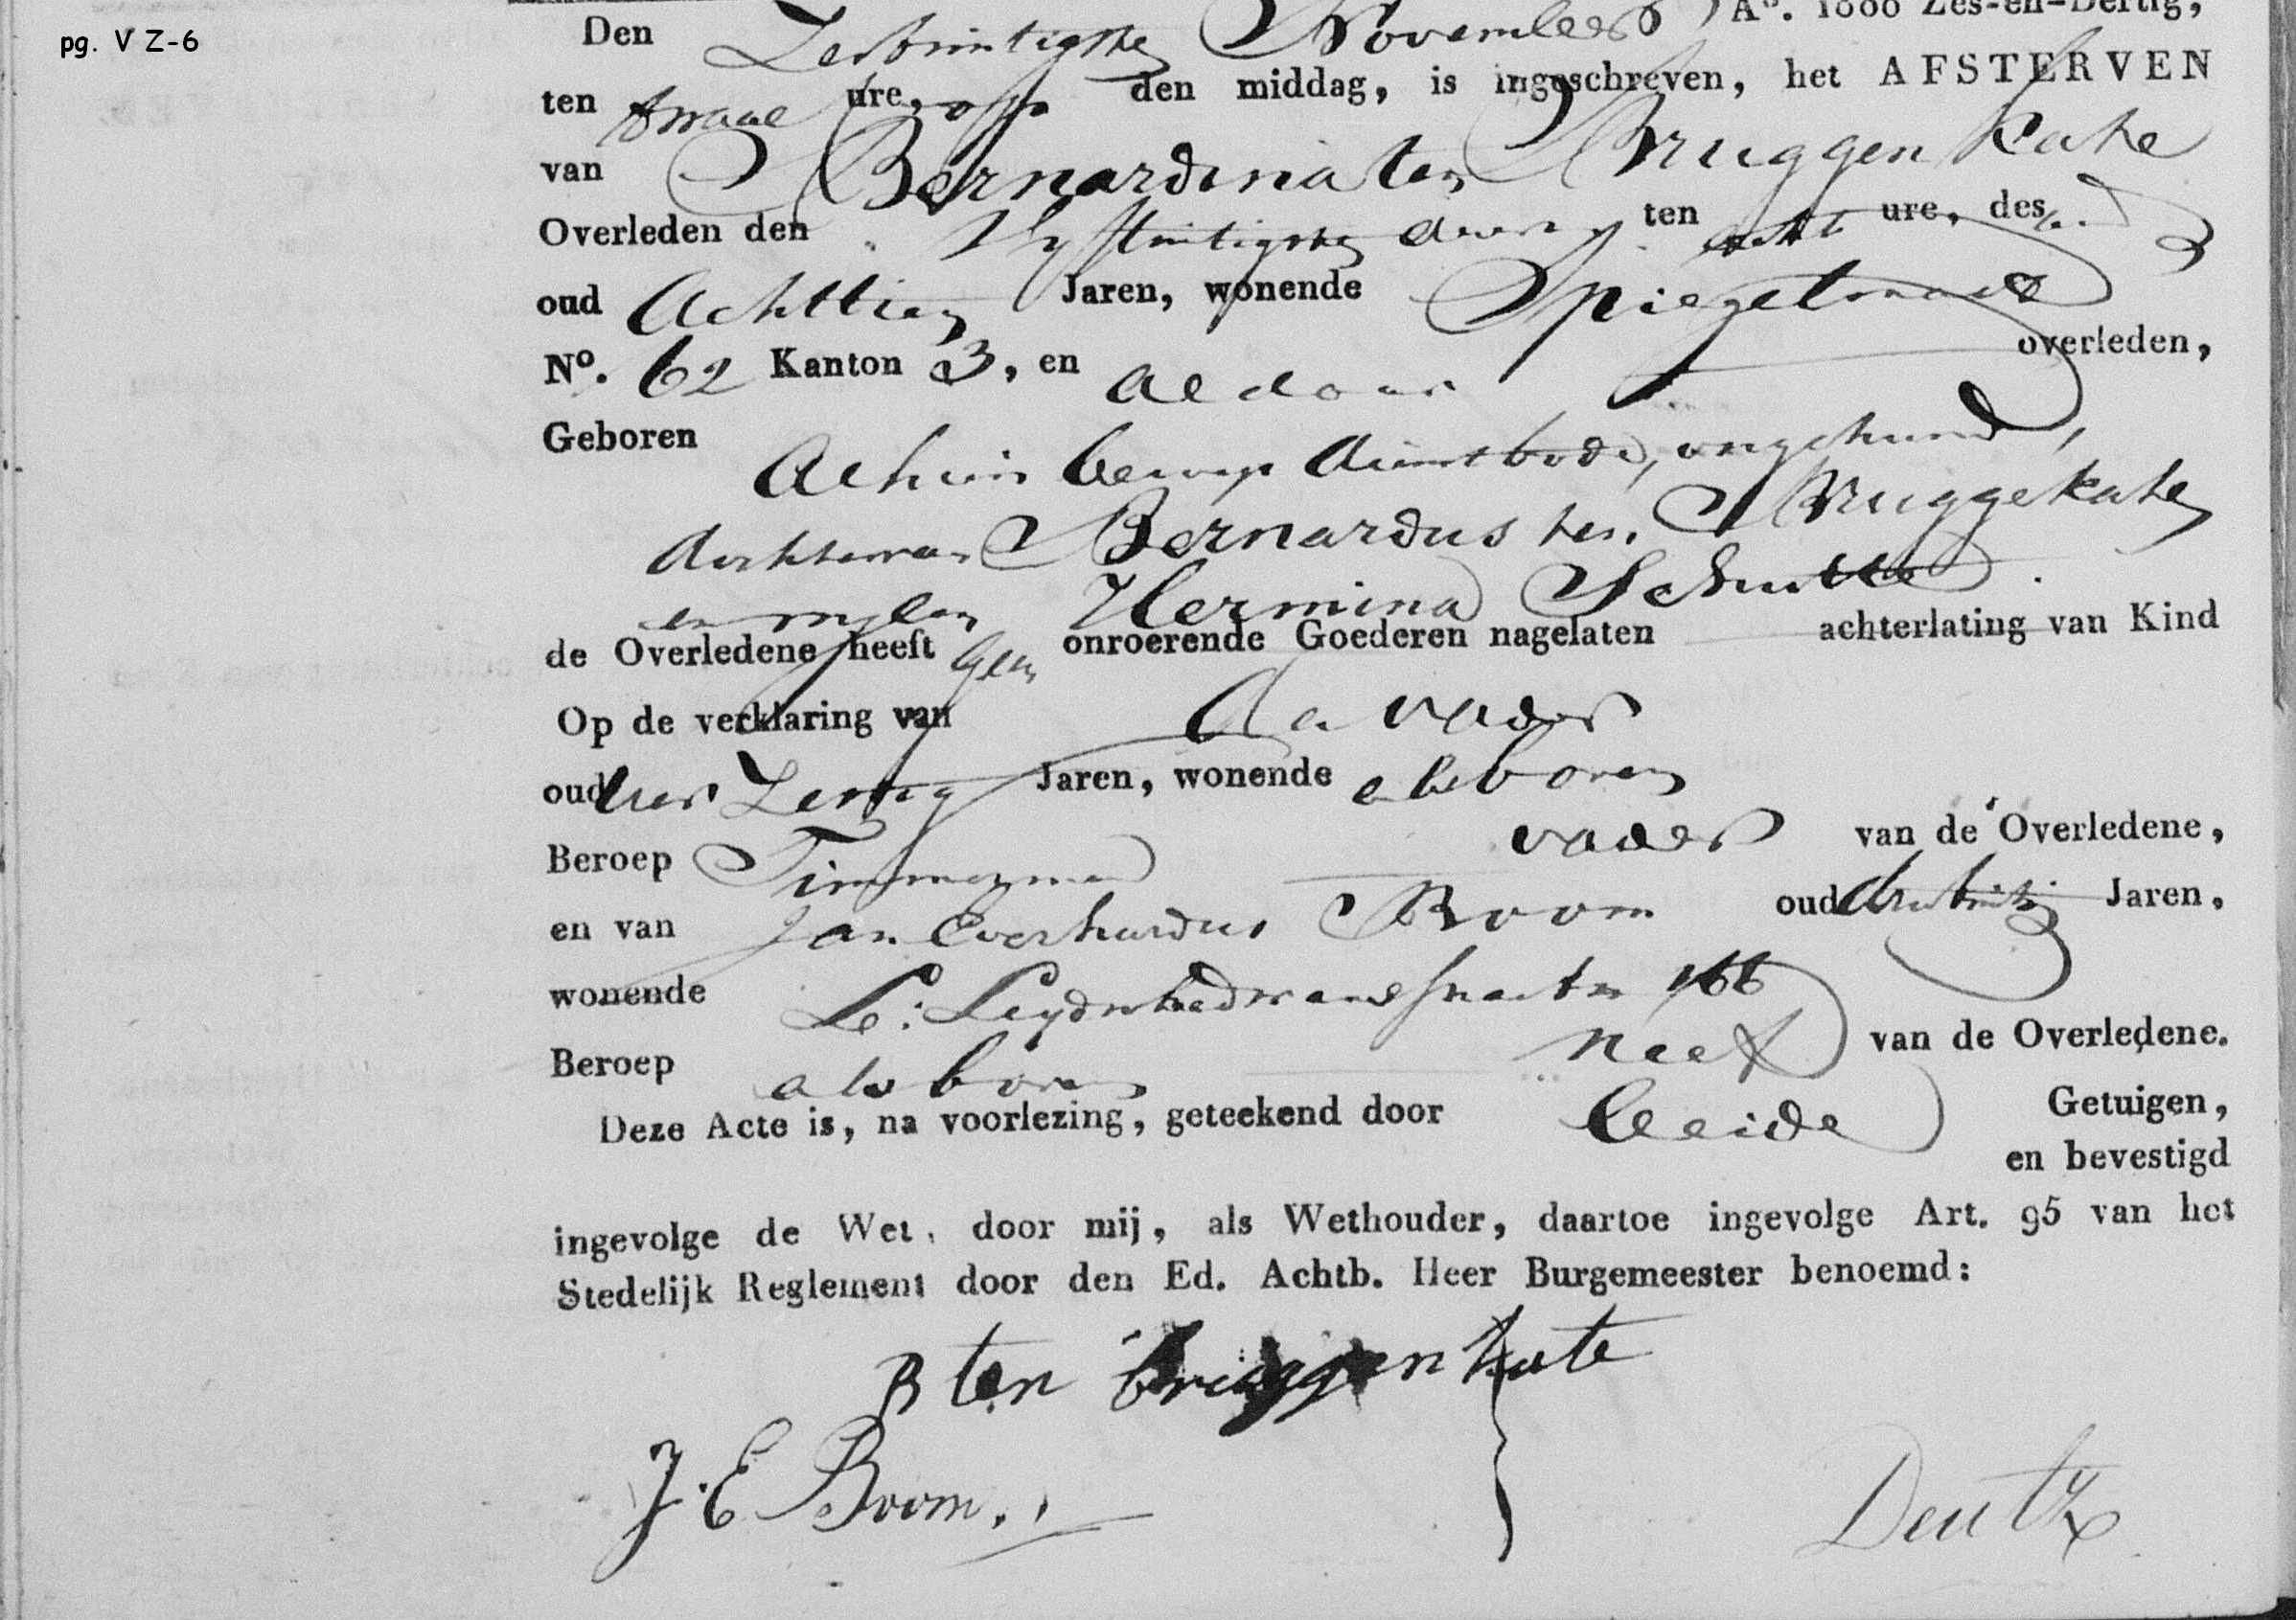 pg. V Z-6
Den Zesentwintigste November A°. 1800 Zes-en-Dertig,
ten twaal ure, op den middag, is ingeschreven, het AFSTERVEN
van Bernardina ten Bruggen Kate
Overleden den Vyftwintigste dezer ten acht ure, des
oud Achttien Jaren, wonende Spiegel
N°. 62 Kanton 3, en aldaar overleden,
Geboren Alhier beroep dienstbode, ongehuwd,
dochter van Bernardus ten Bruggekate
en wylen Hermina Schutte.
de Overledene heeft geen onroerende Goederen nagelaten achterlating van Kind
Op de verklaring van de vader
oud vier Zestig Jaren, wonende als boven
Beroep Timmerman vader van de Overledene,
en van Jan Everhardus Boom oud Jaren,
wonende L: Leydschedwarsstraat n 166
Beroep als boven neef van de Overledene.
Deze Acte is, na voorlezing, geteekend door beide Getuigen,
en bevestigd
ingevolge de Wet, door mij, als Wethouder, daartoe ingevolge Art. 95 van het
Stedelijk Reglement door den Ed. Achtb. Heer Burgemeester benoemd:
B ten Bruggen kate
J. E Boom.
Deutz